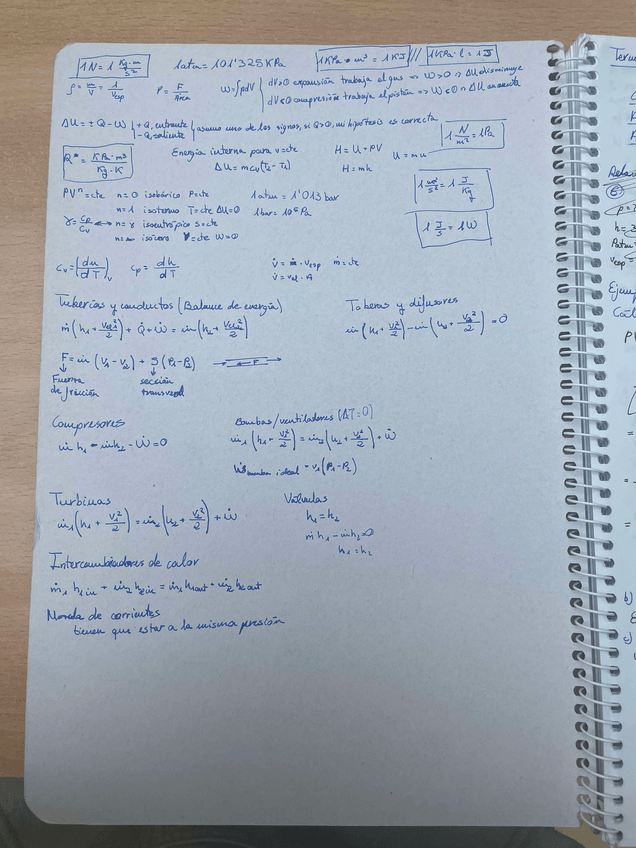 1 N = 1 Kg·m/s²
1 atm = 101'325 KPa
1 KPa · m³ = 1 KJ /// 1 KPa · l = 1 J
ρ = m/V = 1/Vesp
P = F/Area
W = ∫pdV
dV>0 expansión trabaja el gas => W>0 => ΔU disminuye
dV<0 compresión trabaja el pistón => W<0 => ΔU aumenta
ΔU = ± Q - W
+ Q, entrante
- Q, saliente
asumo uno de los signos, si Q>0, mi hipótesis es correcta
1 N/m² = 1 Pa
R* = KPa·m³/Kg·K
Energía interna para v=cte
ΔU = mcv(T2 - T1)
H = U + PV
H = mh
U = mu
PVⁿ = cte
n=0 isobárico P=cte
n=1 isotermo T=cte ΔU=0
γ = cp/cv ↔ n=γ isoentrópico s=cte
n=∞ isócoro V=cte W=0
1 atm = 1'013 bar
1 bar = 10⁵ Pa
1 m²/s² = 1 J/Kg
1 J/s = 1W
cv = (du/dT)v
cp = dh/dT
V̇ = ṁ · vesp
ṁ = cte
V̇ = vel · A
Tuberías y conductos (Balance de energía)
ṁ(h1 + vel1²/2) + Q̇ + Ẇ = ṁ(h2 + vel2²/2)
Toberas y difusores
ṁ(h1 + v1²/2) - ṁ(h2 + v2²/2) = 0
F = ṁ(v1 - v2) + S(P1 - P2)
F
Fuerza de fricción
sección transversal
Compresores
ṁ h1 - ṁh2 - Ẇ = 0
Bombas/ventiladores (ΔT=0)
ṁ1(h1 - v1²/2) = ṁ2(h2 + v2²/2) + Ẇ
ideal = v1(P1 - P2)
Turbinas
ṁ1(h1 + v1²/2) = ṁ2(h2 + v2²/2) + Ẇ
Válvulas
h1 = h2
ṁ h1 - ṁh2 = 0
h1 = h2
Intercambiadores de calor
ṁ1 h1in + ṁ2 h2in = ṁ1 h1out + ṁ2 h2out
Mezcla de corrientes
tienen que estar a la misma presión
b)
c)